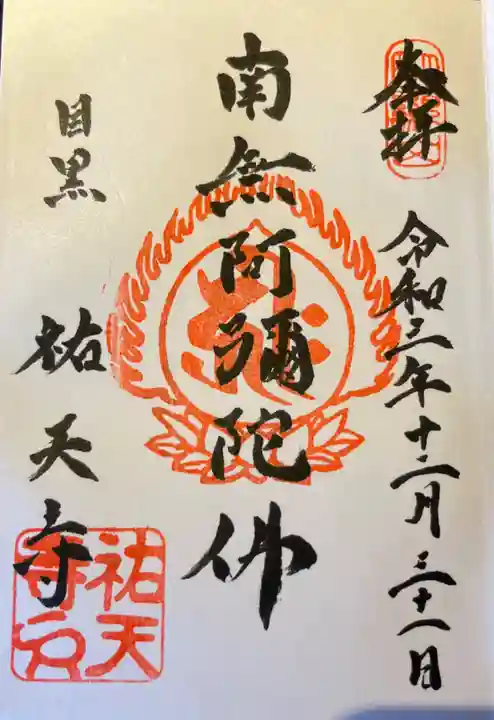 奉拝
令和三年十二月三十一日
南無阿彌陀佛
目黒
祐天寺
祐天
寺印